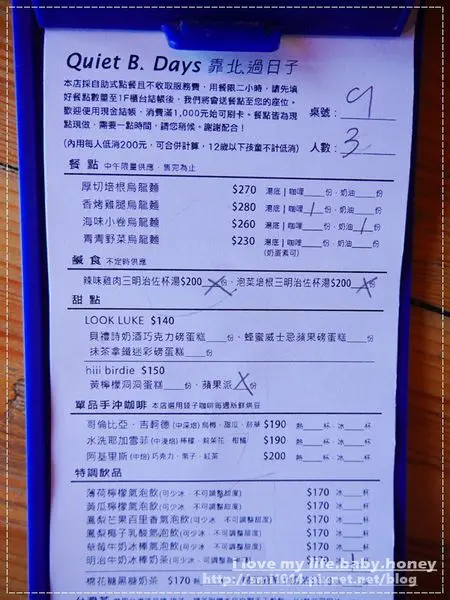 Quiet B. Days 靠北過日子
本店採自助式點餐且不收取服務費，用餐限二小時，請先填
好餐點數量至1F櫃台結帳後，我們將會送餐點至您的座位。
歡迎使用現金結帳，消費滿1,000元始可刷卡。餐點皆為現
點現做，需要一點時間，請您稍候。謝謝配合！
桌號： 9
(內用每人低消200元，可合併計算，12歲以下孩童不計低消)
人數： 3
餐 點 中午限量供應，售完為止
厚切培根烏龍麵 $270 湯底 | 咖哩____份、奶油____份
香烤雞腿烏龍麵 $280 湯底 | 咖哩__/__份、奶油____份
海味小卷烏龍麵 $260 湯底 | 咖哩____份、奶油__/__份
青青野菜烏龍麵 $230 湯底 | 咖哩____份、奶油____份
(奶蛋素可)
鹹 食 不定時供應
辣味雞肉三明治佐杯湯$200 X 份、泡菜培根三明治佐杯湯$200 X 份
甜 點
LOOK LUKE $140
貝禮詩奶酒巧克力磅蛋糕____份、蜂蜜威士忌蘋果磅蛋糕____份
抹茶拿鐵迷彩磅蛋糕____份
hiii birdie $150
黃檸檬洞洞蛋糕____份、蘋果派 X 份
單品手沖咖啡 本店選用鏟子咖啡每週新鮮烘豆
哥倫比亞．吉軻德 $190 熱____杯．冰____杯
水洗耶加雪菲 $190 熱____杯．冰____杯
阿基里斯 (中焙) 巧克力．栗子．紅茶 $200 熱____杯．冰____杯
特調飲品
薄荷檸檬氣泡飲(可少冰．不可調整甜度) $170 冰____杯
黃瓜檸檬氣泡飲(可少冰．不可調整甜度) $170 冰____杯
鳳梨芒果百里香氣泡飲(可少冰．不可調整甜度) $170 冰____杯
鳳梨椰子乳酸氣泡飲(可少冰．不可調整甜度) $170 冰____杯
草莓牛奶冰棒氣泡飲(可少冰．不可調整甜度) $170 冰____杯
明治牛奶冰棒奶茶(可少冰．不可調整甜度) $170 冰
棉花糖黑糖奶茶 $170
I love my life.baby.honey